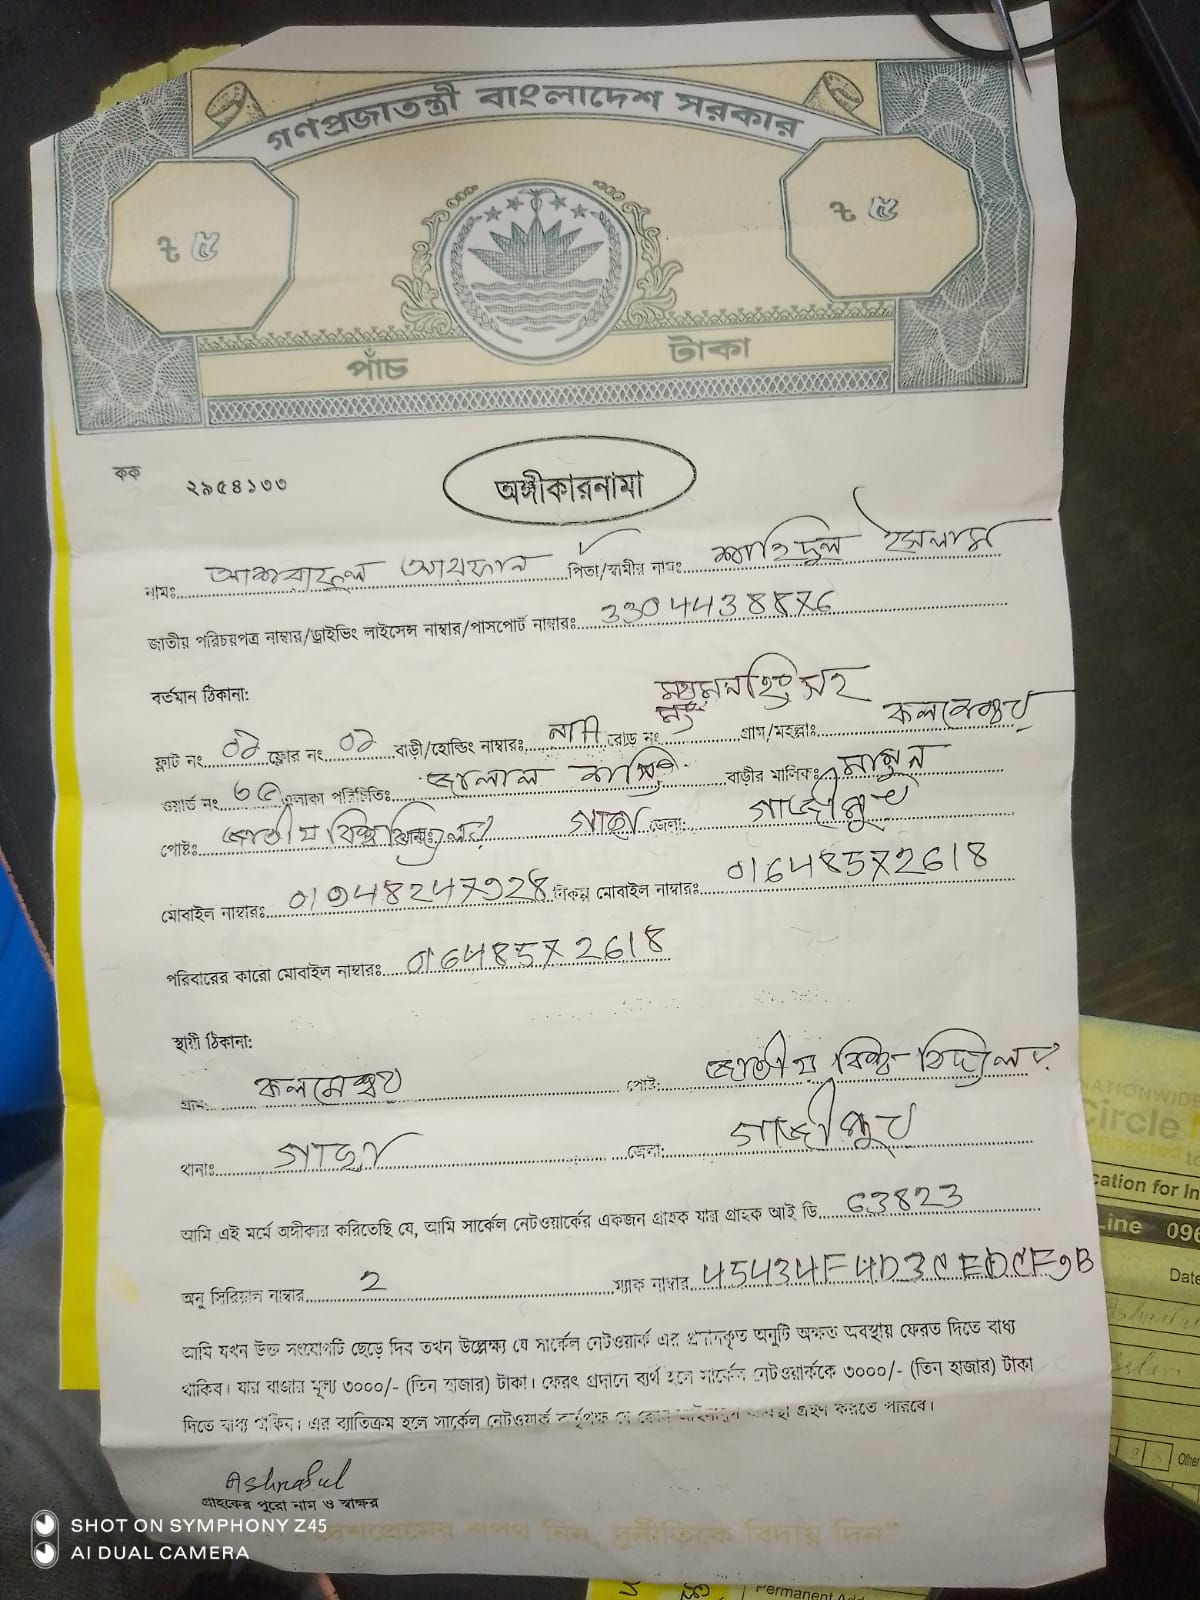 গণপ্রজাতন্ত্রী বাংলাদেশ সরকার
৳ ৫
৳ ৫
পাঁচ টাকা
কক ২৯৫৪১৩৩
অঙ্গীকারনামা
নামঃ আশরাফুল আরফান পিতা/স্বামীর নামঃ শাহিদুল ইসলাম
জাতীয় পরিচয়পত্র নাম্বার/ড্রাইভিং লাইসেন্স নাম্বার/পাসপোর্ট নাম্বারঃ 3304438876
বর্তমান ঠিকানা:
ফ্লাট নং ০১ ফ্লোর নং ০১ বাড়ী/হোল্ডিং নাম্বারঃ নাই রোড নং গ্রাম/মহল্লাঃ কলমেশ্বর
ওয়ার্ড নং ৩৫ এলাকা পরিচিতিঃ জালাল বাড়ীর মালিকঃ মামুন
পোষ্টঃ জাতীয় বিশ্ববিদ্যালয় গাছা জেলা: গাজীপুর
মোবাইল নাম্বারঃ 01948247928 বিকল্প মোবাইল নাম্বারঃ 01648572618
পরিবারের কারো মোবাইল নাম্বারঃ 01648572618
স্থায়ী ঠিকানা:
গ্রাম: কলমেশ্বর পোষ্ট: জাতীয় বিশ্ব বিদ্যালয়
থানাঃ গাছা জেলা: গাজীপুর
আমি এই মর্মে অঙ্গীকার করিতেছি যে, আমি সার্কেল নেটওয়ার্কের একজন গ্রাহক যার গ্রাহক আই ডি 63823
অনু সিরিয়াল নাম্বার 2 ম্যাক নাম্বার 45434F4D3CEDCF9B
আমি যখন উক্ত সংযোগটি ছেড়ে দিব তখন উল্লেক্ষ্য যে সার্কেল নেটওয়ার্ক এর প্রদানকৃত অনুটি অক্ষত অবস্থায় ফেরত দিতে বাধ্য
থাকিব। যার বাজার মূল্য ৩০০০/- (তিন হাজার) টাকা। ফেরৎ প্রদানে ব্যর্থ হলে সার্কেল নেটওয়ার্ককে ৩০০০/- (তিন হাজার) টাকা
দিতে বাধ্য থাকিব। এর ব্যাতিক্রম হলে সার্কেল নেটওয়ার্ক কর্তৃপক্ষ যে কোন আইনানুগ ব্যবস্থা গ্রহণ করতে পারবে।
Ashraful
গ্রাহকের পুরো নাম ও স্বাক্ষর
দেশপ্রেমের শপথ নিন, দুর্নীতিকে বিদায় দিন"
SHOT ON SYMPHONY Z45
AI DUAL CAMERA
NATIONWIDE
Circle
onnected to
cation for In
Line 096
Date
Other
Permanent Add